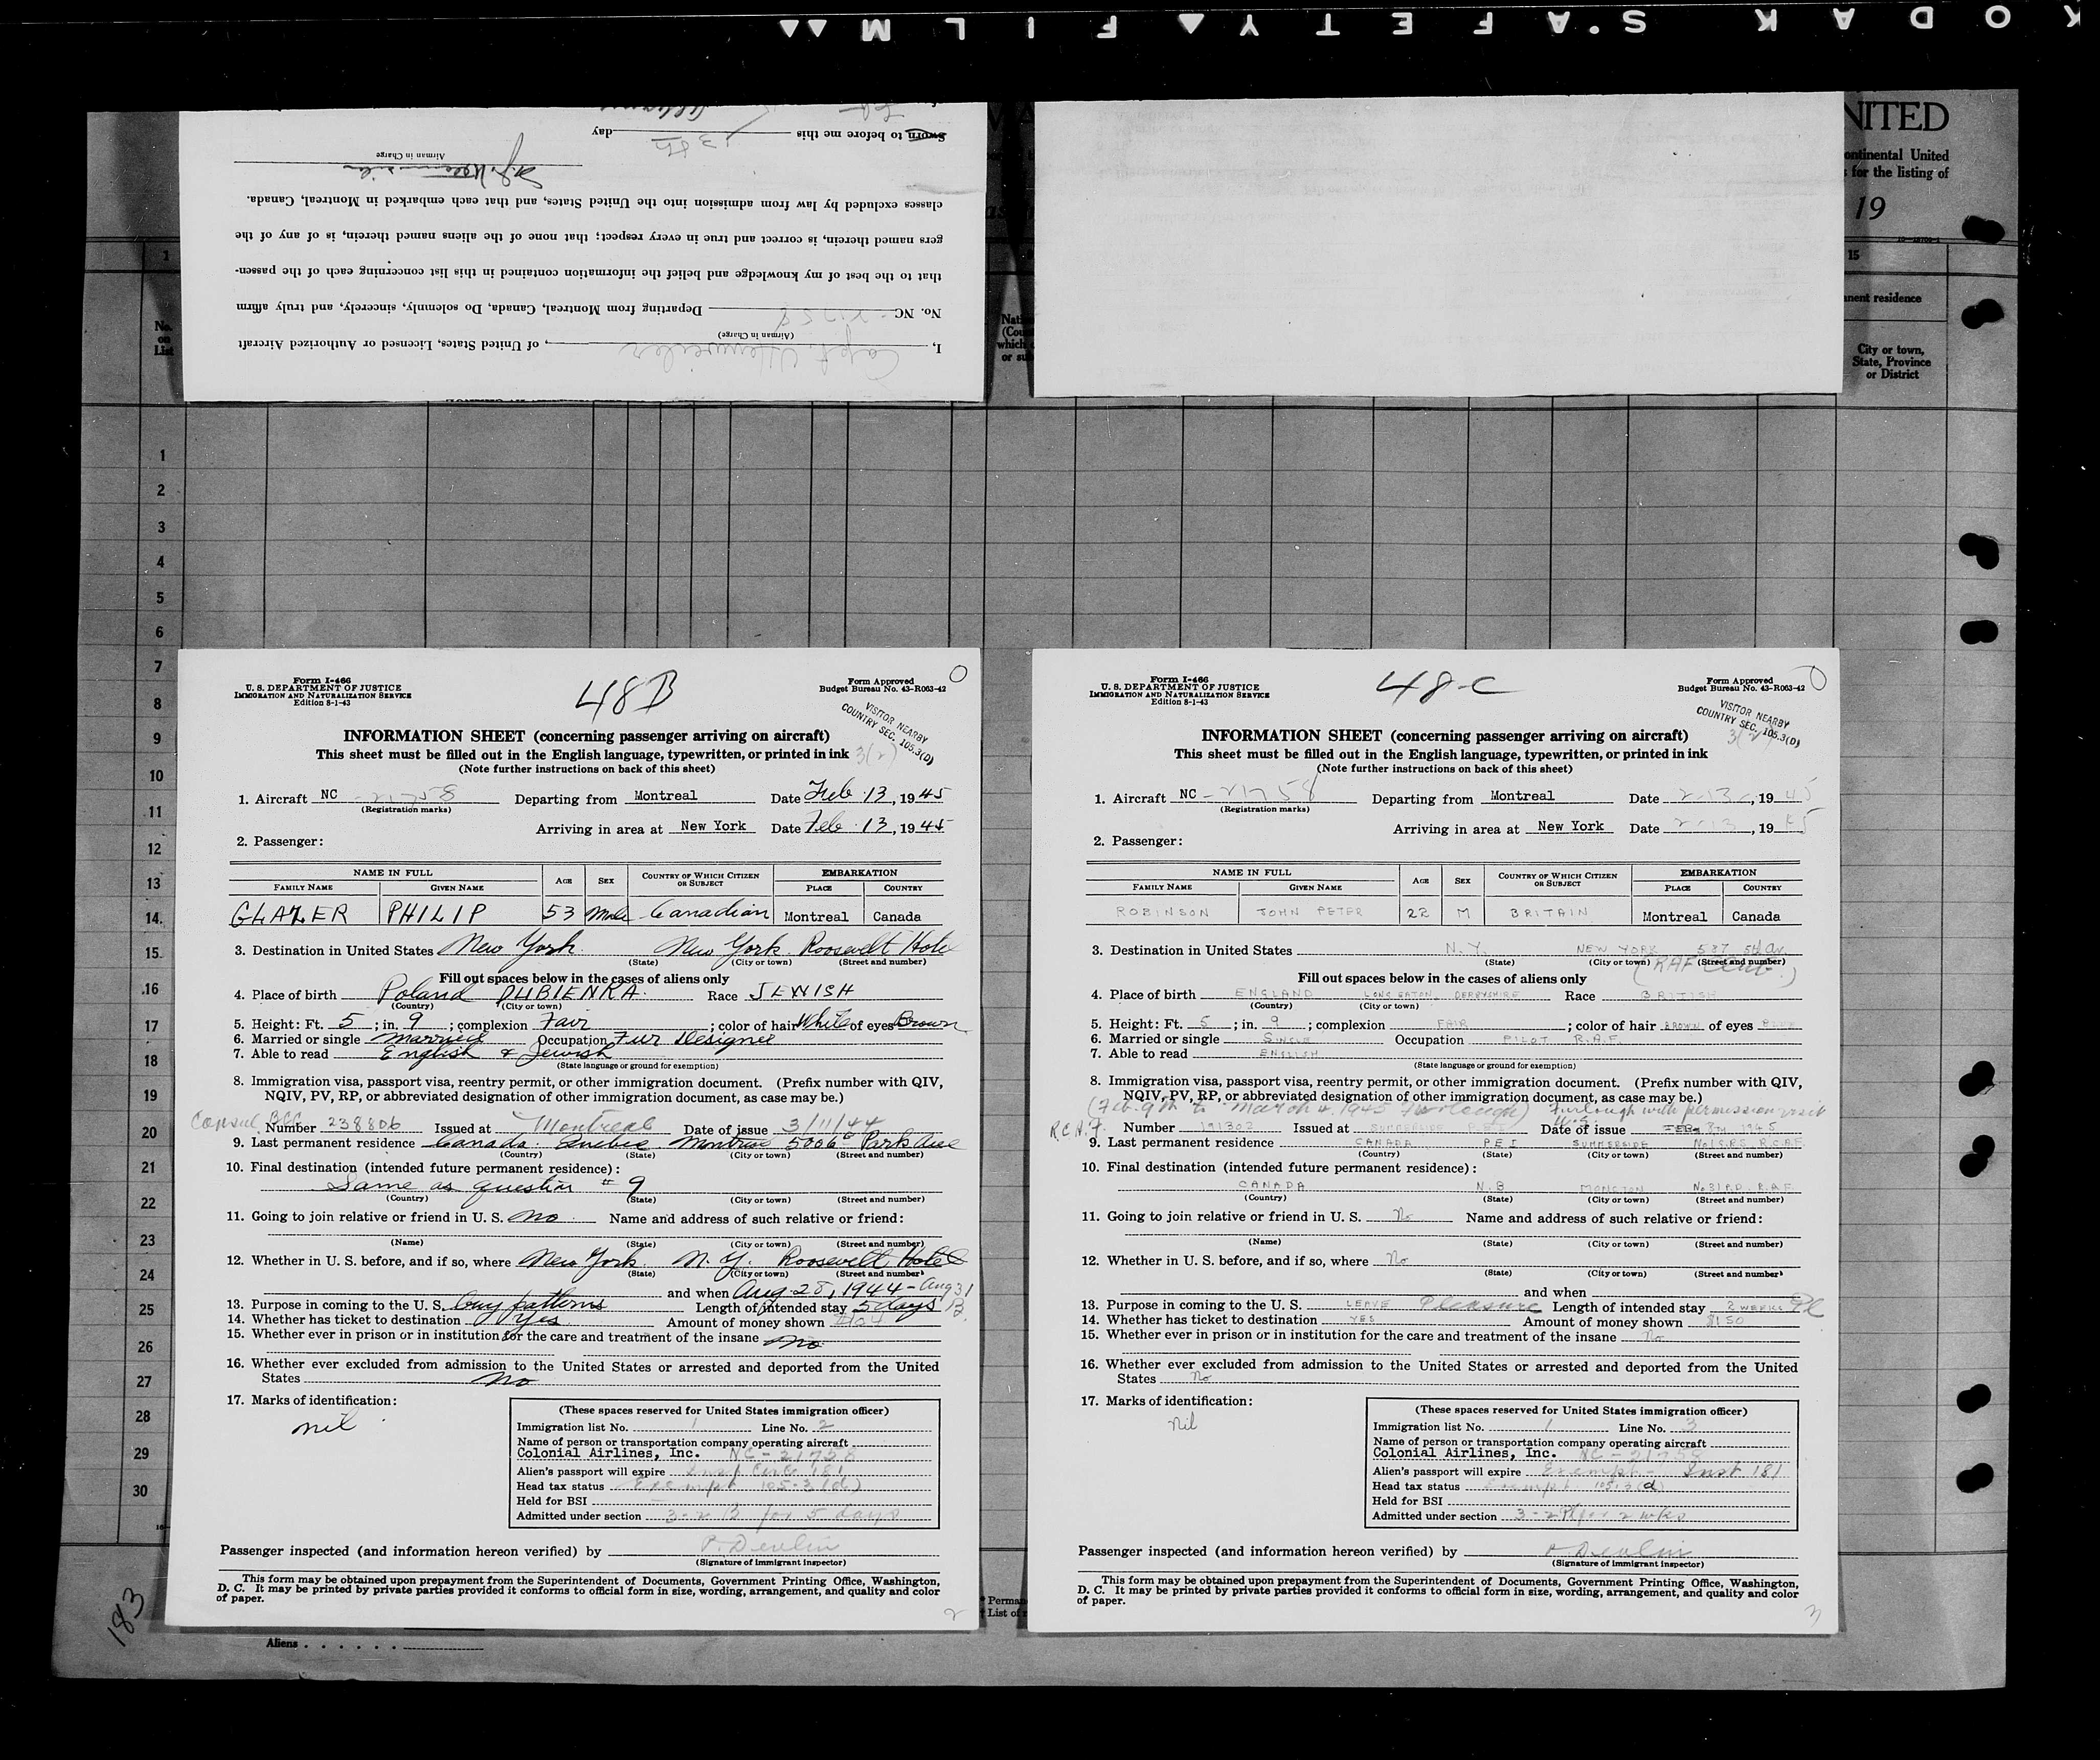 KODAK SAFETY FILM
Sworn to before me this 13th day
Airman in Charge
classes excluded by law from admission into the United States, and that each embarked in Montreal, Canada.
gers named therein, is correct and true in every respect; that none of the aliens named therein, is of any of the
that to the best of my knowledge and belief the information contained in this list concerning each of the passen-
No. NC-21758 Departing from Montreal, Canada, Do solemnly, sincerely, and truly affirm
(Airman in Charge)
I, Capt. , of United States, Licensed or Authorized Aircraft
NITED
ontinental United
for the listing of
19
15
nent residence
City or town,
State, Province
or District
1
No.
on
List
Nati
(Cou
which
or su
1
2
3
4
5
6
7
8
9
10
11
12
13
14
15
16
17
18
19
20
21
22
23
24
25
26
27
28
29
30
183
Aliens
* Perma
† List of
Form I-466
U. S. DEPARTMENT OF JUSTICE
IMMIGRATION AND NATURALIZATION SERVICE
Edition 8-1-43
48B
Form Approved
Budget Bureau No. 43-R063-42
VISITOR NEARBY
COUNTRY SEC. 105.3(D)
INFORMATION SHEET (concerning passenger arriving on aircraft)
This sheet must be filled out in the English language, typewritten, or printed in ink 3(2)
(Note further instructions on back of this sheet)
1. Aircraft NC -21758 Departing from Montreal Date Feb. 13, 1945
(Registration marks)
Arriving in area at New York Date Feb. 13, 1945
2. Passenger:
NAME IN FULL AGE SEX COUNTRY OF WHICH CITIZEN OR SUBJECT EMBARKATION
FAMILY NAME GIVEN NAME PLACE COUNTRY
GLAZER PHILIP 53 Male Canadian Montreal Canada
3. Destination in United States New York New York Roosevelt Hotel
(State) (City or town) (Street and number)
Fill out spaces below in the cases of aliens only
4. Place of birth Poland DUBIENKA. Race JEWISH
(Country) (City or town)
5. Height: Ft. 5; in. 9; complexion Fair; color of hair White of eyes Brown
6. Married or single Married Occupation Fur Designer
7. Able to read English & Jewish
(State language or ground for exemption)
8. Immigration visa, passport visa, reentry permit, or other immigration document. (Prefix number with QIV,
NQIV, PV, RP, or abbreviated designation of other immigration document, as case may be.)
Consul BCC Number 238806 Issued at Montreal Date of issue 3/11/44
9. Last permanent residence Canada. Quebec Montreal 5006 Park Ave
(Country) (State) (City or town) (Street and number)
10. Final destination (intended future permanent residence):
Same as question # 9
(Country) (State) (City or town) (Street and number)
11. Going to join relative or friend in U. S. No Name and address of such relative or friend:
(Name) (State) (City or town) (Street and number)
12. Whether in U. S. before, and if so, where New York N. Y. Roosevelt Hotel
(State) (City or town) (Street and number)
and when Aug. 28, 1944 - Aug 31
13. Purpose in coming to the U. S. Buy patterns Length of intended stay 5 days B
14. Whether has ticket to destination Yes Amount of money shown $104
15. Whether ever in prison or in institution for the care and treatment of the insane No
16. Whether ever excluded from admission to the United States or arrested and deported from the United
States No
17. Marks of identification:
nil
(These spaces reserved for United States immigration officer)
Immigration list No. 1 Line No. 2
Name of person or transportation company operating aircraft
Colonial Airlines, Inc. NC-21758
Alien's passport will expire Inst Circ 181
Head tax status Exempt 105-3(d)
Held for BSI
Admitted under section 3-2 B for 5 days
Passenger inspected (and information hereon verified) by P. Devlin
(Signature of immigrant inspector)
This form may be obtained upon prepayment from the Superintendent of Documents, Government Printing Office, Washington,
D. C. It may be printed by private parties provided it conforms to official form in size, wording, arrangement, and quality and color
of paper.
2
Form I-466
U. S. DEPARTMENT OF JUSTICE
IMMIGRATION AND NATURALIZATION SERVICE
Edition 8-1-43
48-C
Form Approved
Budget Bureau No. 43-R063-42
VISITOR NEARBY
COUNTRY SEC. 105.3(D)
3(2)
INFORMATION SHEET (concerning passenger arriving on aircraft)
This sheet must be filled out in the English language, typewritten, or printed in ink
(Note further instructions on back of this sheet)
1. Aircraft NC -21758 Departing from Montreal Date 2-13, 1945
(Registration marks)
Arriving in area at New York Date 2-13, 1945
2. Passenger:
NAME IN FULL AGE SEX COUNTRY OF WHICH CITIZEN OR SUBJECT EMBARKATION
FAMILY NAME GIVEN NAME PLACE COUNTRY
ROBINSON JOHN PETER 22 M BRITAIN Montreal Canada
3. Destination in United States N.Y. NEW YORK 587 5th Av.
(State) (City or town) (Street and number)
(RAF )
Fill out spaces below in the cases of aliens only
4. Place of birth ENGLAND LONG EATON, DERBYSHIRE Race BRITISH
(Country) (City or town)
5. Height: Ft. 5; in. 9; complexion FAIR; color of hair BROWN of eyes
6. Married or single SINGLE Occupation PILOT R.A.F.
7. Able to read ENGLISH
(State language or ground for exemption)
8. Immigration visa, passport visa, reentry permit, or other immigration document. (Prefix number with QIV,
NQIV, PV, RP, or abbreviated designation of other immigration document, as case may be.)
(Feb. 9th to March 4, 1945 Furlough) Furlough with permission visit U.S.
Number 191302 Issued at SUMMERSIDE P.E.I. Date of issue FEB. 8TH 1945
9. Last permanent residence CANADA P.E.I SUMMERSIDE No1 G.R.S. R.C.A.F.
(Country) (State) (City or town) (Street and number)
10. Final destination (intended future permanent residence):
CANADA N.B MONCTON No 31 P.D. R.A.F.
(Country) (State) (City or town) (Street and number)
11. Going to join relative or friend in U. S. No Name and address of such relative or friend:
(Name) (State) (City or town) (Street and number)
12. Whether in U. S. before, and if so, where No
(State) (City or town) (Street and number)
and when
13. Purpose in coming to the U. S. LEAVE Pleasure Length of intended stay 2 WEEKS Pl
14. Whether has ticket to destination YES Amount of money shown $150
15. Whether ever in prison or in institution for the care and treatment of the insane No
16. Whether ever excluded from admission to the United States or arrested and deported from the United
States No
17. Marks of identification:
Nil
(These spaces reserved for United States immigration officer)
Immigration list No. 1 Line No. 3
Name of person or transportation company operating aircraft
Colonial Airlines, Inc. NC-21758
Alien's passport will expire Exempt - Inst 181
Head tax status Exempt 105.3(d)
Held for BSI
Admitted under section 3-2 Pl for 2 wks
Passenger inspected (and information hereon verified) by P. Devlin
(Signature of immigrant inspector)
This form may be obtained upon prepayment from the Superintendent of Documents, Government Printing Office, Washington,
D. C. It may be printed by private parties provided it conforms to official form in size, wording, arrangement, and quality and color
of paper.
3